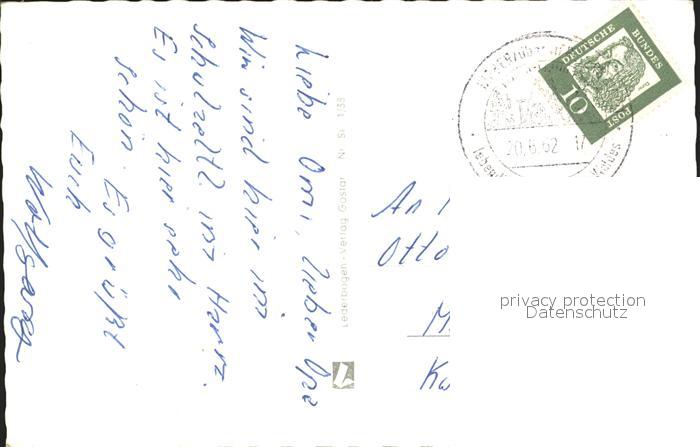 Liebe Omi, lieber Opa
Wir sind hier im
Schulzeltl. im Harz.
Es ist hier sehr
schön. Es grüßt
Euch
Wolfgang
Lederbogen-Verlag Goslar Nr. St 1/33
DEUTSCHE BUNDES
POST
10
20.6.62
An
Otto
M
Ka
privacy protection
Datenschutz